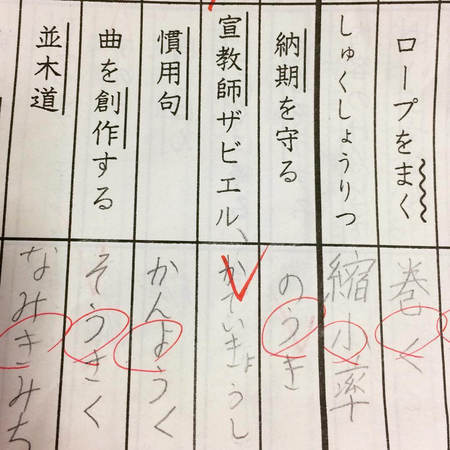 ロープをまく
巻く
しゅくしょうりつ
縮小率
納期を守る
のうき
宣教師ザビエル、
かていきょうし
慣用句
かんようく
曲を創作する
そうさく
並木道
なみきみち